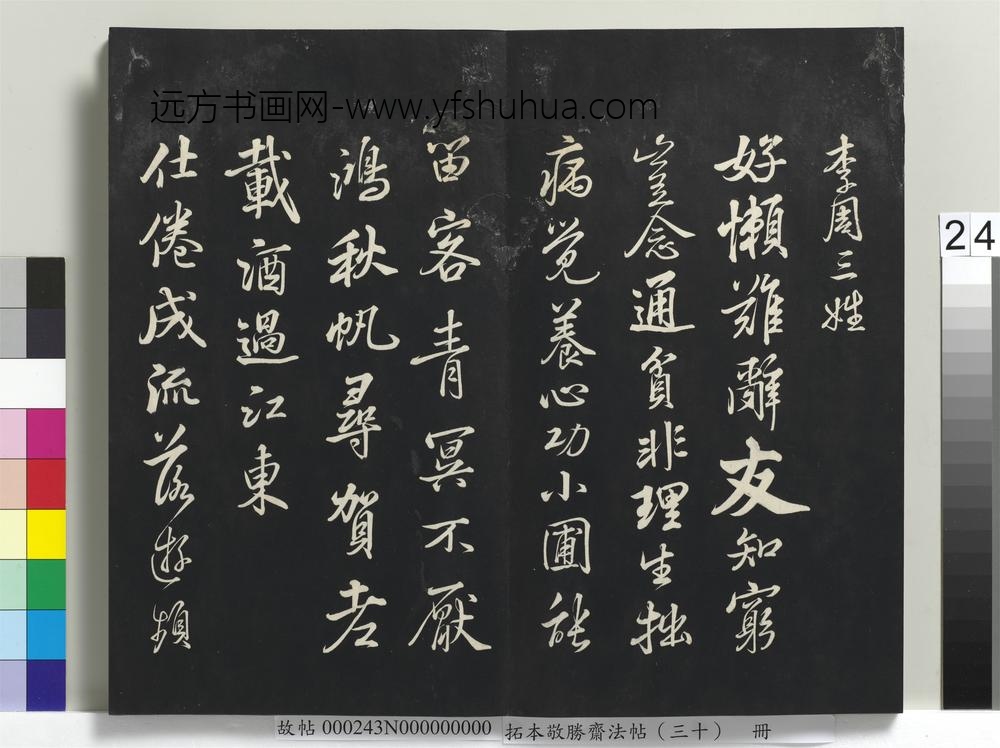 远方书画网-www.yfshuhua.com
李周三姓
好懶難辭友知窮
豈念通貧非理生拙
病覺養心功小圃能
留客青冥不厭
鴻秋帆尋賀老
載酒過江東
仕倦成流落遊頻
24
故帖 000243N000000000 拓本敬勝齋法帖（三十） 冊